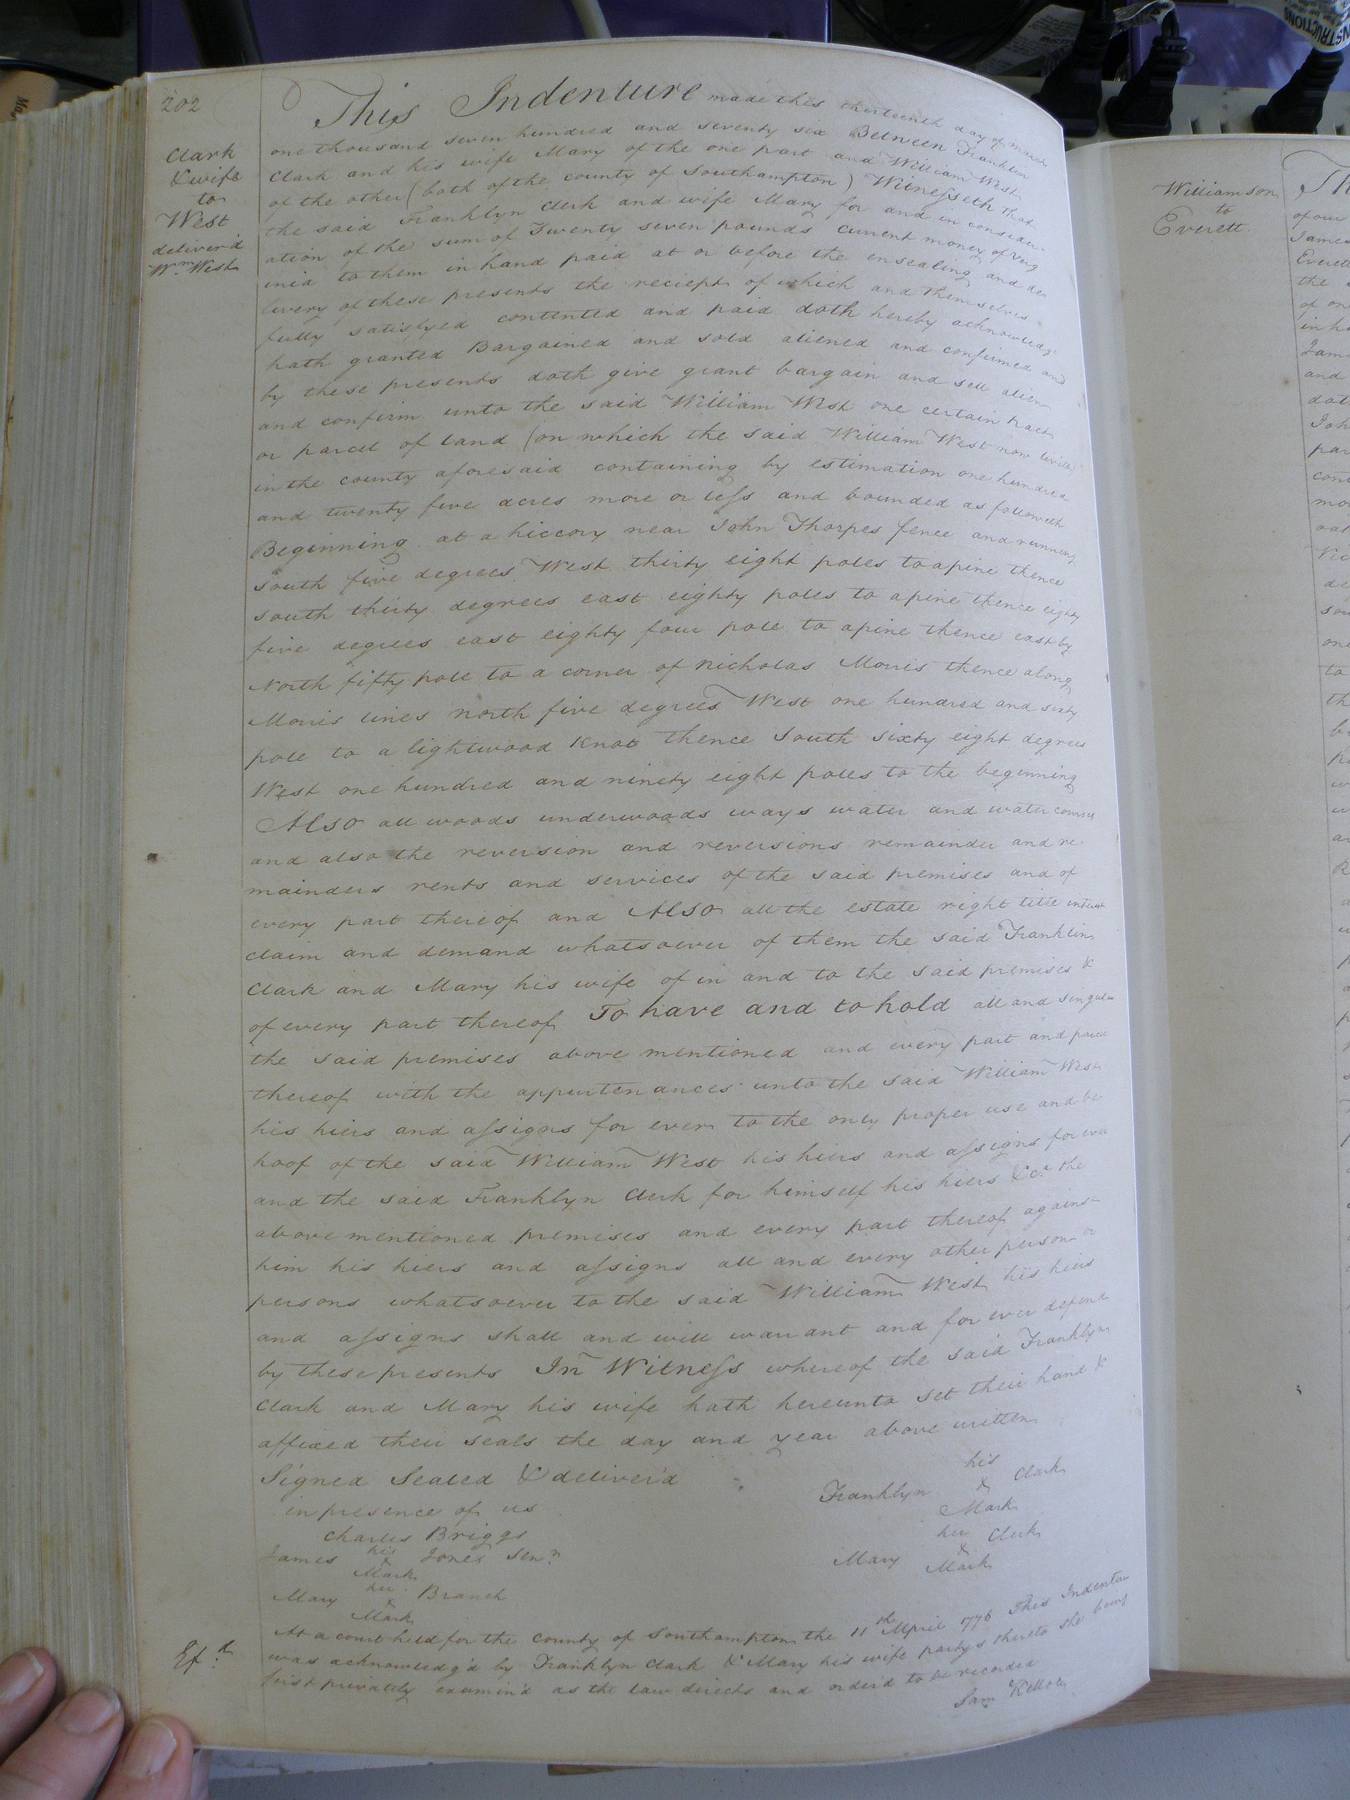 202
Clark
& wife
to
West
deliver'd
Wm. West
This Indenture made this thirteenth day of March
one thousand seven hundred and seventy six Between Franklin
Clark and his wife Mary of the one part and William West
of the other (both of the county of Southampton) Witnesseth that
the said Franklyn Clerk and wife Mary for and in consider-
ation of the sum of Twenty seven pounds current money of Virg
inia to them in hand paid at or before the ensealing and de
livery of these presents the reciept of which and themselves
fully satisfyed contented and paid doth hereby acknowledge
hath granted Bargained and sold aliened and confirmed and
by these presents doth give grant bargain and sell alien
and confirm unto the said William West one certain tract
or parcel of land (on which the said William West now lives)
in the county aforesaid containing by estimation one hundred
and twenty five acres more or less and bounded as followeth
Beginning at a hiccory near John Thorpes fence and running
south five degrees West thirty eight poles to a pine thence
south thirty degrees east eighty poles to a pine thence eighty
five degrees east eighty four pole to a pine thence east by
North fifty pole to a corner of Nicholas Morris thence along
Morris lines north five degrees West one hundred and sixty
pole to a lightwood Knot thence South sixty eight degrees
West one hundred and ninety eight poles to the beginning
Also all woods underwoods ways water and water courses
and also the reversion and reversions remainder and re
mainders rents and services of the said premises and of
every part thereof and Also all the estate right title interest
claim and demand whatsoever of them the said Franklin
Clark and Mary his wife of in and to the said premises &
of every part thereof To have and to hold all and singular
the said premises above mentioned and every part and parcel
thereof with the appurtenances unto the said William West
his hiers and assigns for ever to the only proper use and be
hoof of the said William West his hiers and assigns for ever
and the said Franklyn Clerk for himself his hiers &c. the
above mentioned premises and every part thereof against
him his hiers and assigns all and every other person or
persons whatsoever to the said William West his hiers
and assigns shall and will warrant and for ever defend
by these presents In Witness whereof the said Franklyn
Clark and Mary his wife hath hereunto set their hand &
affixed their seals the day and year above written
Signed Sealed & deliver'd
in presence of us
Charles Briggs
James his Jones Senr.
x
Mark
Mary her Branch
x
Mark
his
Franklyn x Clark
Mark
her
Mary x Clerk
Mark
At a court held for the County of Southampton the 11th April 1776 This Indenture
was acknowledg'd by Franklyn Clark & Mary his wife partys thereto she being
first privately examin'd as the law directs and order'd to be recorded
Sam Kello
Exd.
Williamson
to
Everett